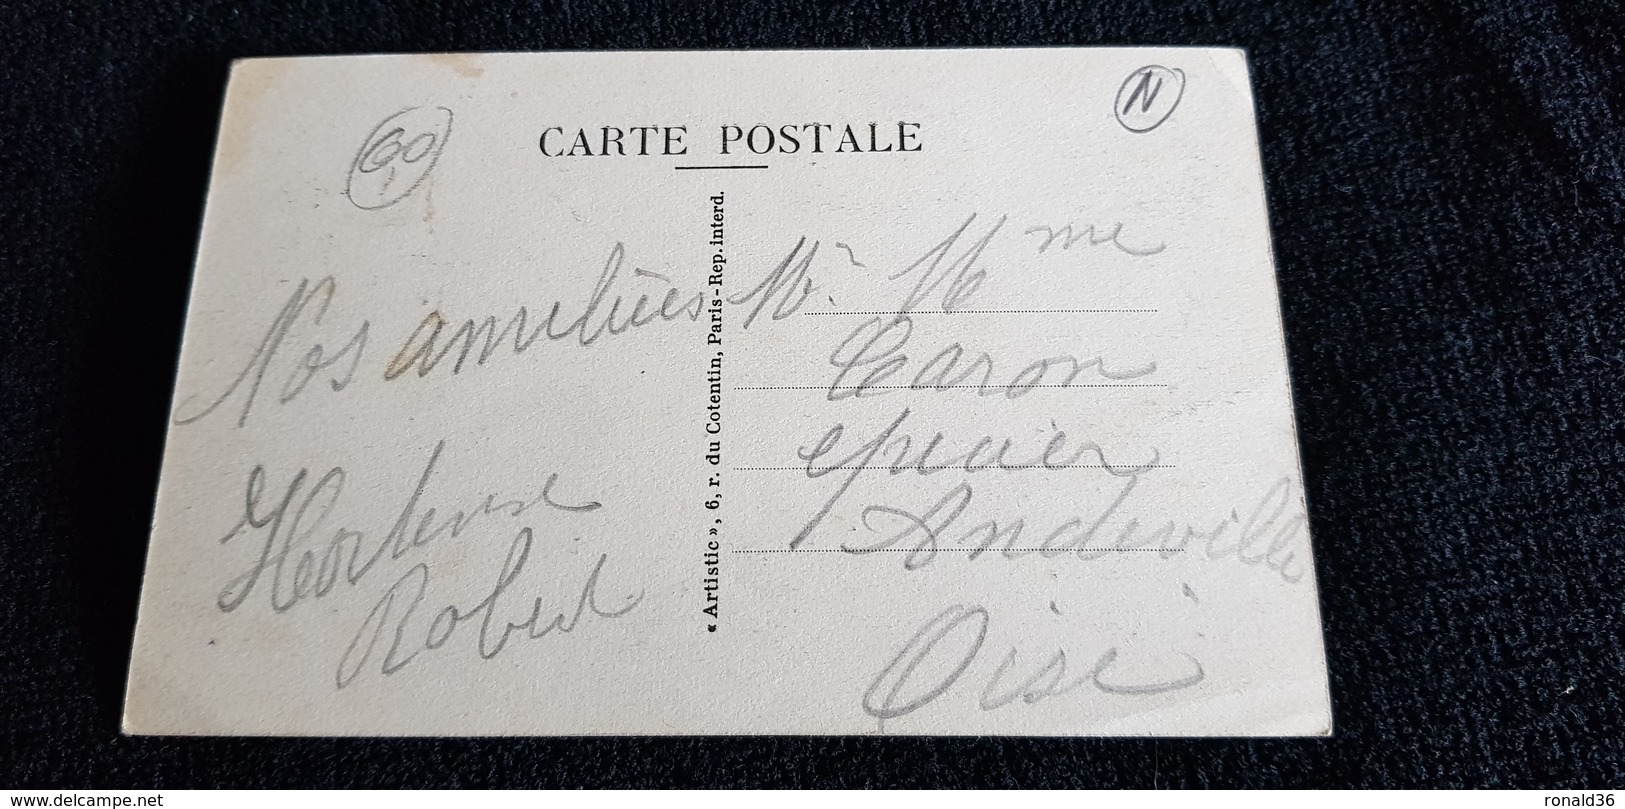 CARTE POSTALE
60
N
Nos amitiées
Hortense
Robert
« Artistic », 6, r. du Cotentin, Paris-Rep. interd.
Mr. Mme
Caron
epicier
Andeville
Oise
https://www.delcampe.net
ronald36